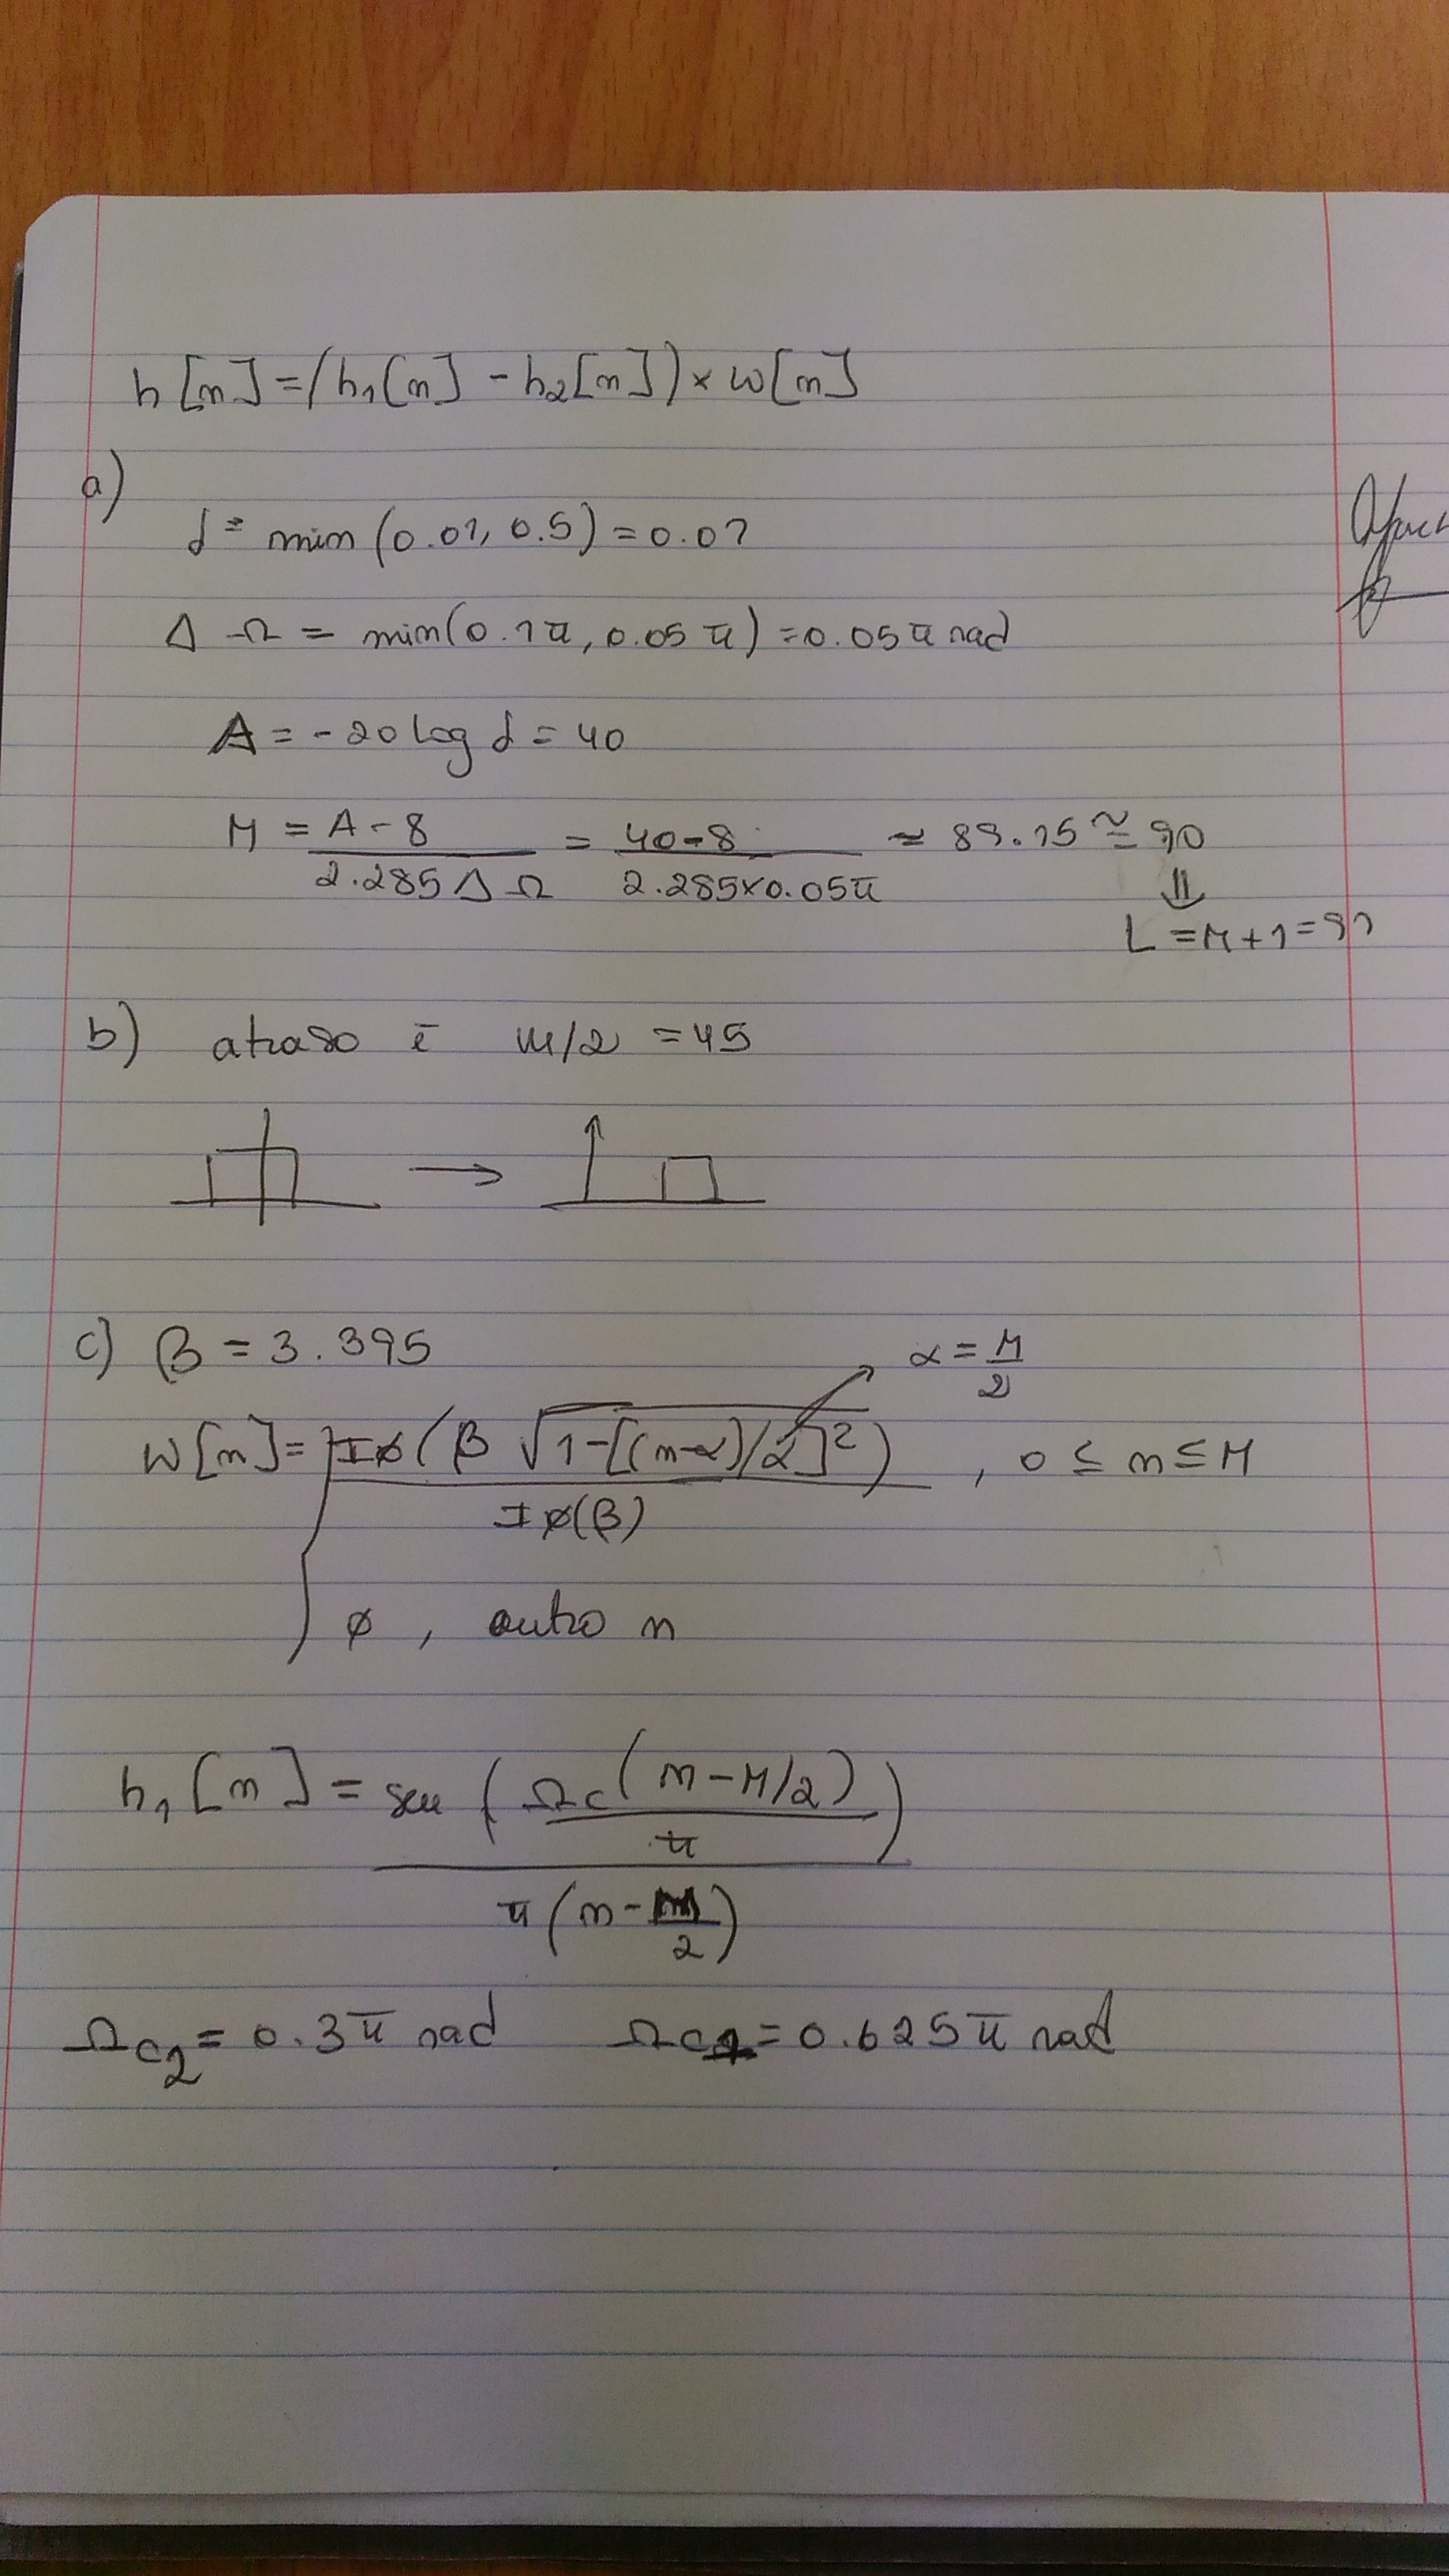 h[n] = (h₁[n] - h₂[n]) × w[n]
a)
δ = min (0.01, 0.5) = 0.01
ΔΩ = min(0.1π, 0.05π) = 0.05π rad
A = -20 log δ = 40
M = (A - 8)/(2.285ΔΩ) = (40-8)/(2.285×0.05π) ≈ 89.15 ≅ 90
⇓
L = M + 1 = 91
b) atraso é M/2 = 45
→
c) β = 3.395 α = M/2
w[n] = { IØ(β √(1-[(n-α)/α]²)) / IØ(β) , 0 ≤ n ≤ M
Ø , outro n
h₁[n] = sen (Ωc(n - M/2)/π) / π(n - M/2)
Ωc₂ = 0.3π rad Ωc₁ = 0.625π rad